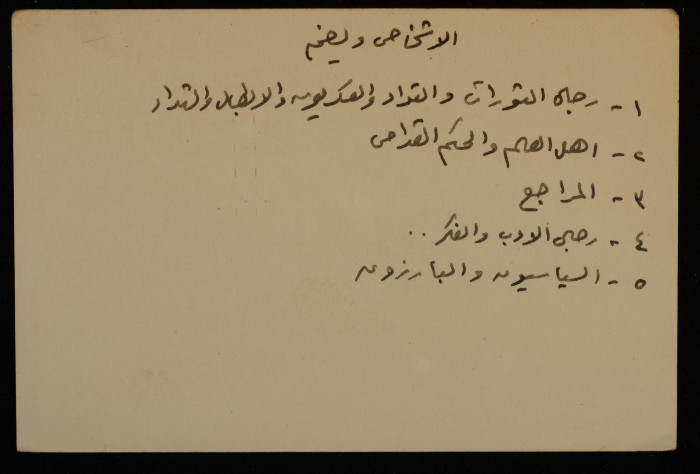 الاشخاص ويضم
١- رجال الثورات والقواد والعسكريون والابطال والقواد
٢- اهل العلم والحكم القدامى
٣- المراجع
٤- رجال الادب والفكر ..
٥- السياسيون والبارزون